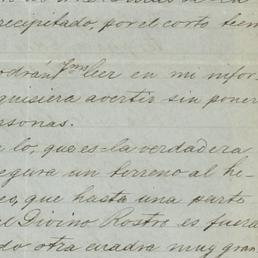 recipitado, por el corto tiem
odrán Sms leer en mi infor
quisiera avertir sin poner
ersonas.
lo, que es la verdadera
egura un terreno al he-
o, que hasta una parte
el Divino Rostro es fuera
do otra cuadra muy gran